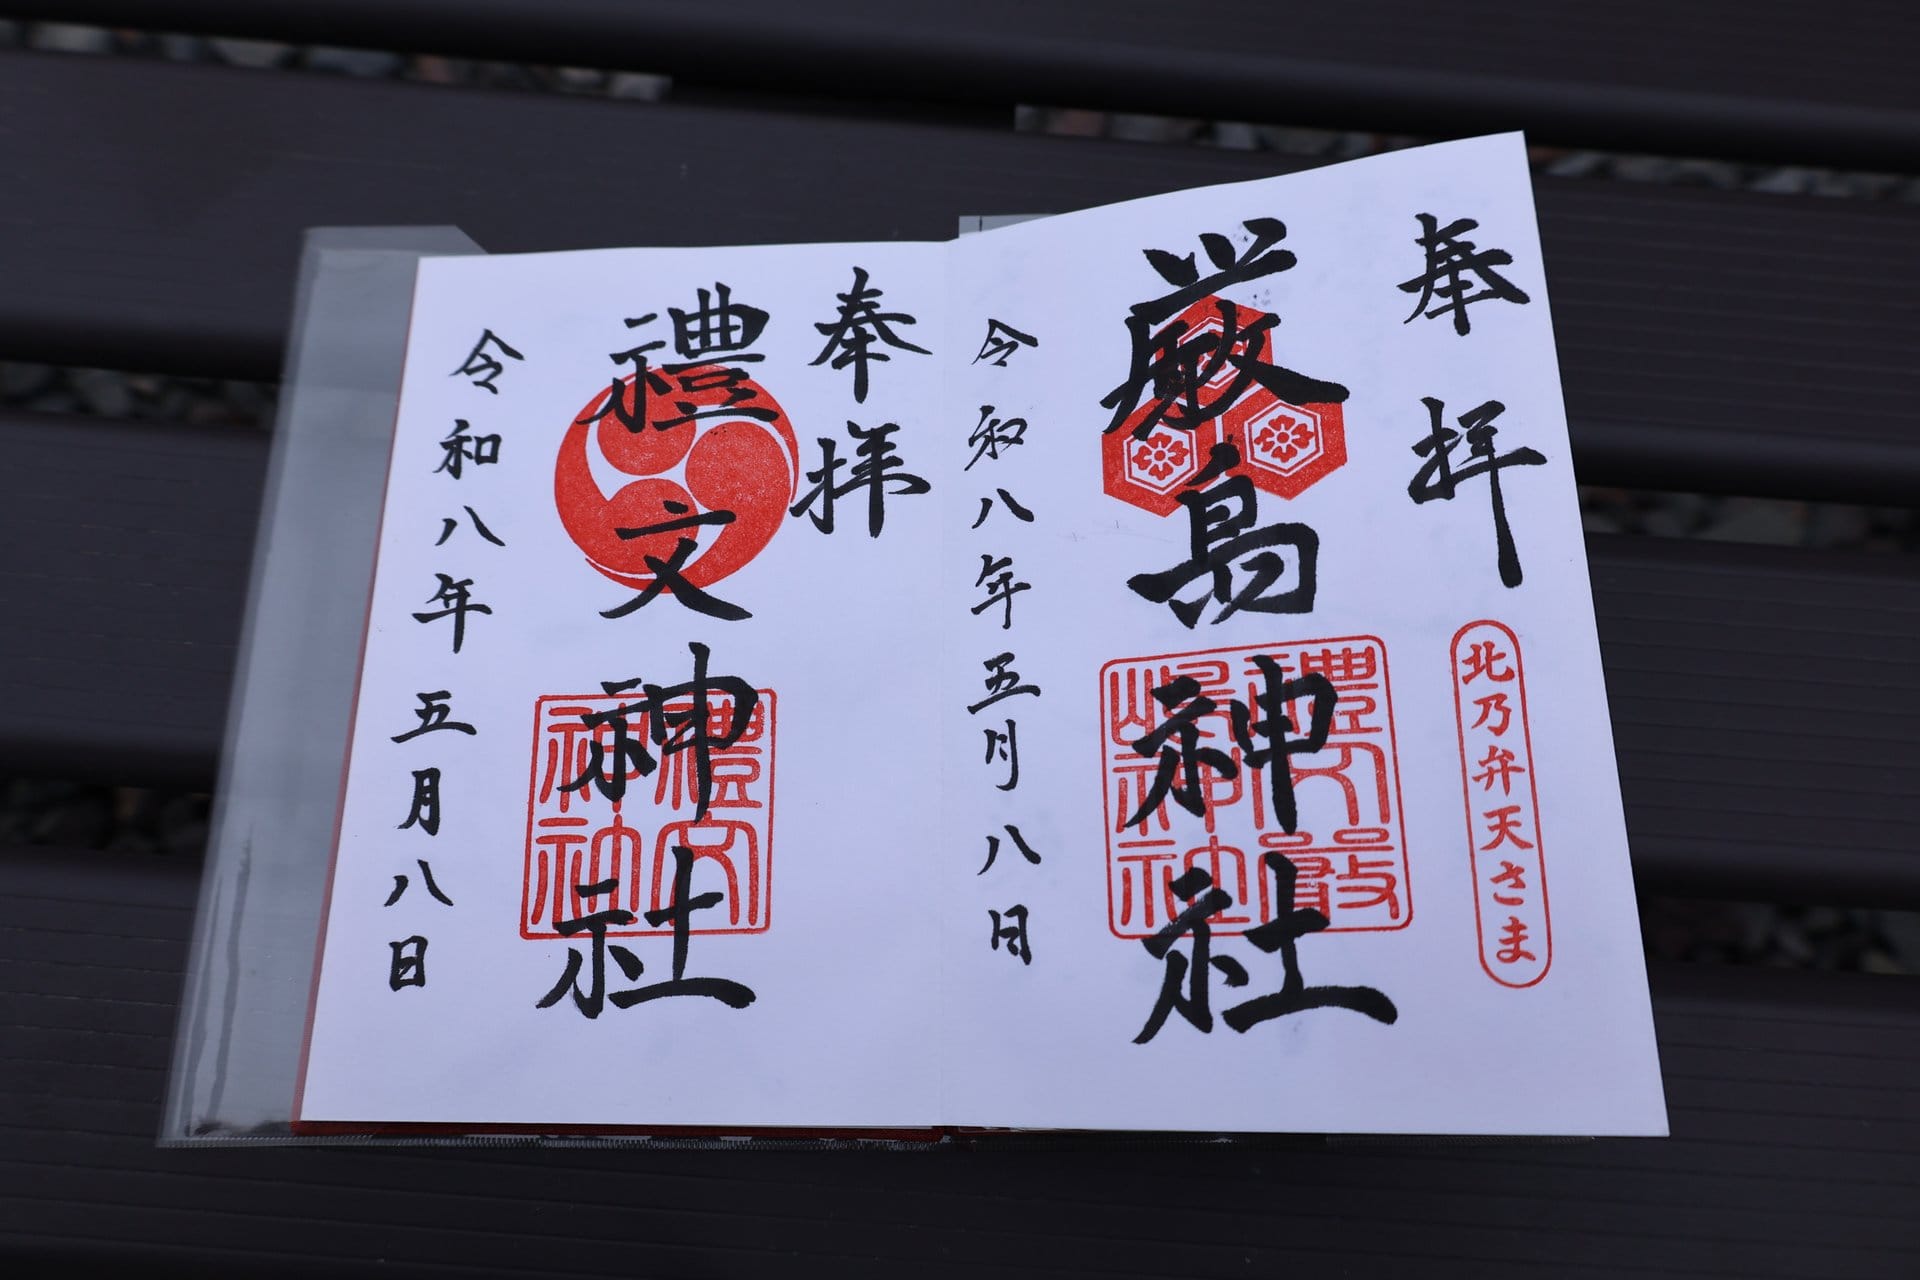 奉拝
北乃弁天さま
厳島神社
禮文厳
島神社
令和八年五月八日
奉拝
禮文神社
禮文
神社
令和八年五月八日